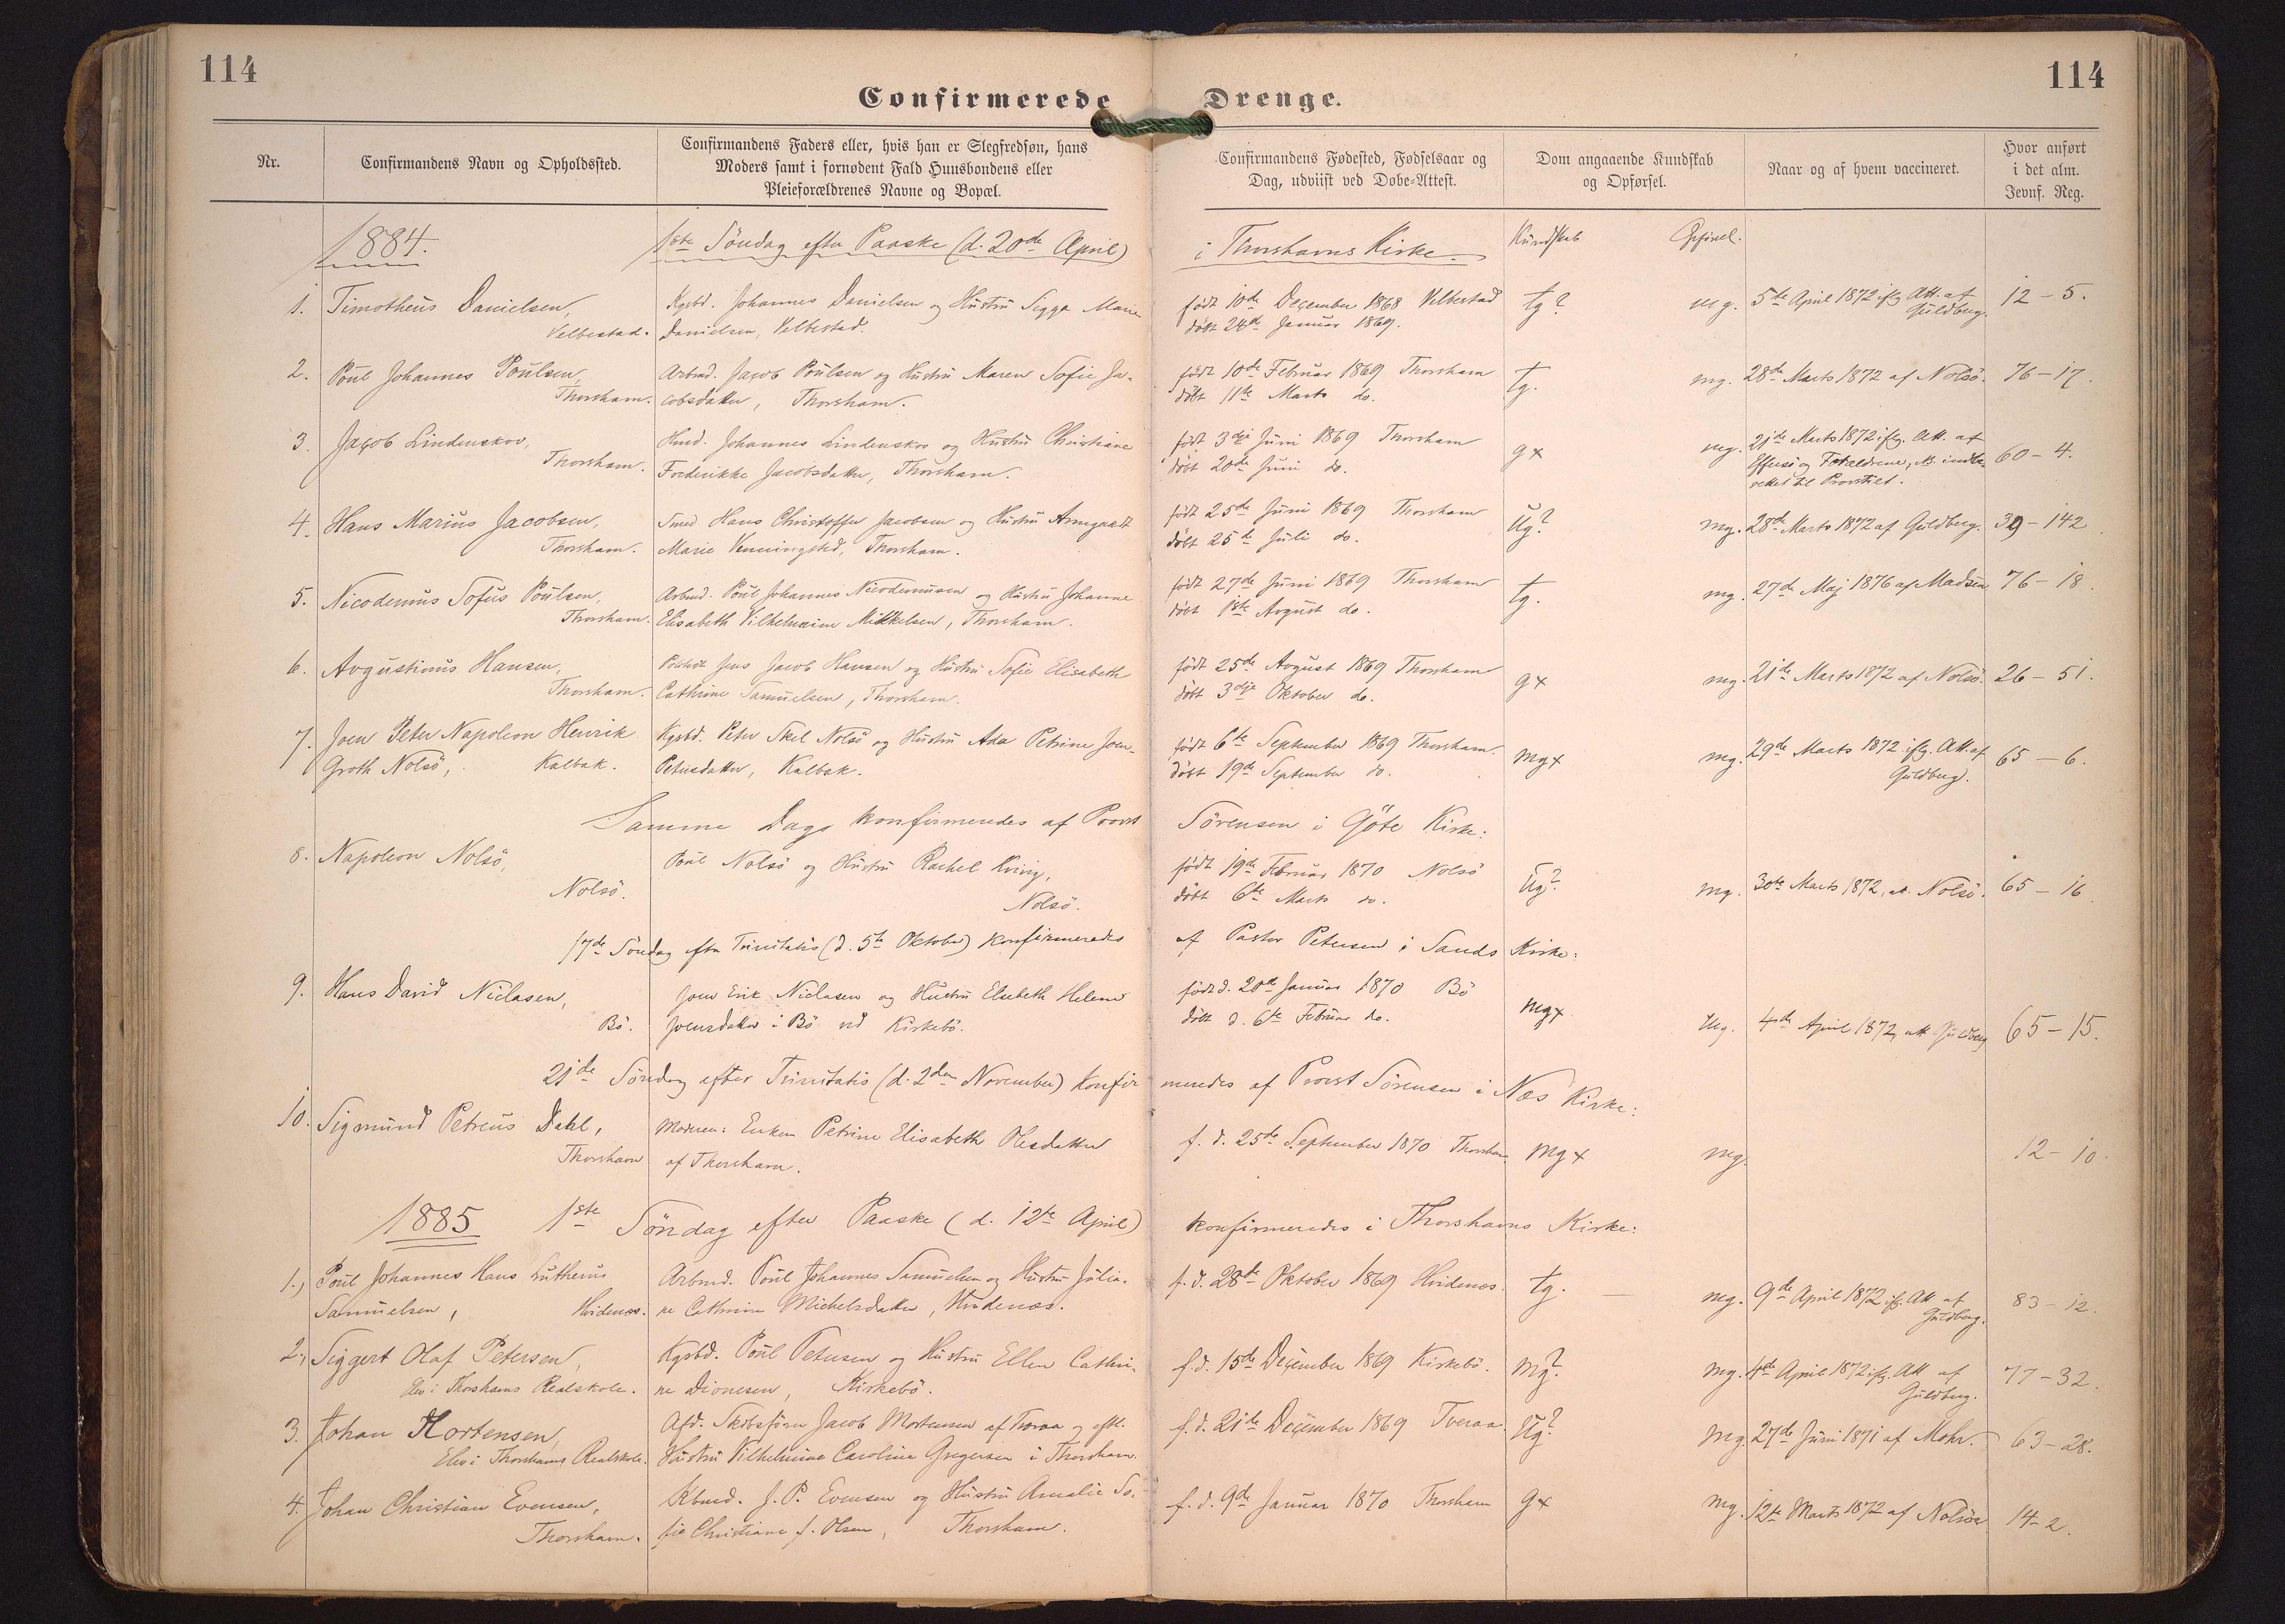 114
114
Confirmerede Drenge.
Nr.
Confirmandens Navn og Opholdssted.
Confirmandens Faders eller, hvis han er Slegfredsøn, hans
Moders samt i fornødent Fald Huusbondens eller
Pleieforældrenes Navne og Bopæl.
Confirmandens Fødested, Fødselsaar og
Dag, udviist ved Døbe-Attest.
Dom angaaende Kundskab
og Opførsel.
Naar og af hvem vaccineret.
Hvor anført
i det alm.
Jevnf. Reg.
1884. 1ste Söndag efter Paaske (d. 20de April) i Thorshavns Kirke. Kundskab Opförsel.
1. Timotheus Danielsen, Kgsbd. Johannes Danielsen og Hustru Sigga Marie födt 10de December 1868 Velbestad tg? mg. 5te April 1872 iflg. Att. af 12-5.
Velbestad. Danielsen, Velbestad. döbt 24de Januar 1869. Guldberg.
2. Poul Johannes Poulsen, Arbmd. Jacob Poulsen og Hustru Maren Sofie Ja- födt 10de Februar 1869 Thorshavn tg. mg. 28de Marts 1872 af Nolsö. 76-17.
Thorshavn. cobsdatter, Thorshavn. döbt 11te Marts do.
3. Jacob Lindenskov, Hmd. Johannes Lindenskov og Hustru Christiane födt 3dje Juni 1869 Thorshavn g× mg. 21de Marts 1872 iflg. Att. af 60-4.
Thorshavn. Frederikke Jacobsdatter, Thorshavn. döbt 20de Juni do. og Forældrene, indbe-
rettet til Provstiet.
4. Hans Marius Jacobsen, Smed Hans Christoffer Jacobsen og Hustru Armgardt födt 25de Juni 1869 Thorshavn ug? mg. 28de Marts 1872 af Guldberg. 39-142
Thorshavn. Marie Venningsted, Thorshavn. döbt 25de Juli do.
5. Nicodemus Sofus Poulsen, Arbmd. Poul Johannes Nicodemusen og Hustru Johanne födt 27de Juni 1869 Thorshavn tg. mg. 27de Maj 1876 af Madsen 76-18.
Thorshavn. Elisabeth Vilhelmine Mikkelsen, Thorshavn. döbt 1ste Avgust do.
6. Avgustinus Hansen, Jens Jacob Hansen og Hustru Sofie Elisabeth födt 25de Avgust 1869 Thorshavn g× mg. 21de Marts 1872 af Nolsö. 26-51.
Thorshavn. Cathrine Samuelsen, Thorshavn. döbt 3dje Oktober do.
7. Joen Peter Napoleon Henrik Kgsbd. Peter Skeel Nolsö og Hustru Ada Petrine Joen- födt 6te September 1869 Thorshavn. mg× mg. 29de Marts 1872 iflg. Att. af 65-6.
Groth Nolsö, Kalbak. Petersdatter, Kalbak. döbt 19de September do. Guldberg.
Samme Dags konfirmeredes af Provst Sörensen i Göte Kirke:
8. Napoleon Nolsö, Poul Nolsö og Hustru Rachel födt 19de Februar 1870 Nolsö ug? mg. 30te Marts 1872, Nolsö. 65-16
Nolsö. Nolsö. döbt 6te Marts do.
17de Söndag efter Trinitatis (d. 5te Oktober) konfirmeredes af Pastor Petersen i Sands Kirke:
9. Hans David Niclasen, Joen Erik Niclasen og Hustru Elsebeth Helene född. 20de Januar 1870 Bö mg× ug. 4de April 1872, att. Guldberg 65-15.
Bö. Joensdatter i Bö ved Kirkebö. döbt d. 6te Februar do.
21de Söndag efter Trinitatis (d. 2den November) konfirmeredes af Provst Sörensen i Næs Kirke:
10. Sigmund Petreus Dahl, Moderen: Enken Petrine Elisabeth Olesdatter f. d. 25de September 1870 Thorshavn mg× mg. 12-10.
Thorshavn af Thorshavn.
1885 1ste Söndag efter Paaske (d. 12te April) konfirmeredes i Thorshavns Kirke:
1., Poul Johannes Hans Lutherus Arbmd. Poul Johannes Samuelsen og Hustru Julia- f. d. 28de Oktober 1869 Hvidenæs. tg. — mg. 9de April 1872 iflg. Att. af 83-12.
Samuelsen, Hvidenæs. ne Cathrine Michelsdatter, Hvidenæs. Guldberg.
2., Siggert Olaf Petersen, Kgsbd. Poul Petersen og Hustru Ellen Cathri- f. d. 15de December 1869 Kirkebö. mg? mg. 4de April 1872 iflg. Att. af 77-32.
Elev i Thorshavns Realskole. ne Dionesen, Kirkebö. Guldberg.
3. Johan Mortensen, Afd. Skibsförer Jacob Mortensen af Tveraa og eftl. f. d. 21de December 1869 Tveraa. ug? mg. 27de Juni 1871 af Mohr. 63-28.
Elev i Thorshavns Realskole. Hustru Vilhelmine Caroline Gregersen i Thorshavn.
4. Johan Christian Evensen, Kbmd. J. P. Evensen og Hustru Amalie So- f. d. 9de Januar 1870 Thorshavn g× mg. 12te Marts 1872 af Nolsöe 14-2.
Thorshavn. fie Christiane f. Olsen, Thorshavn.